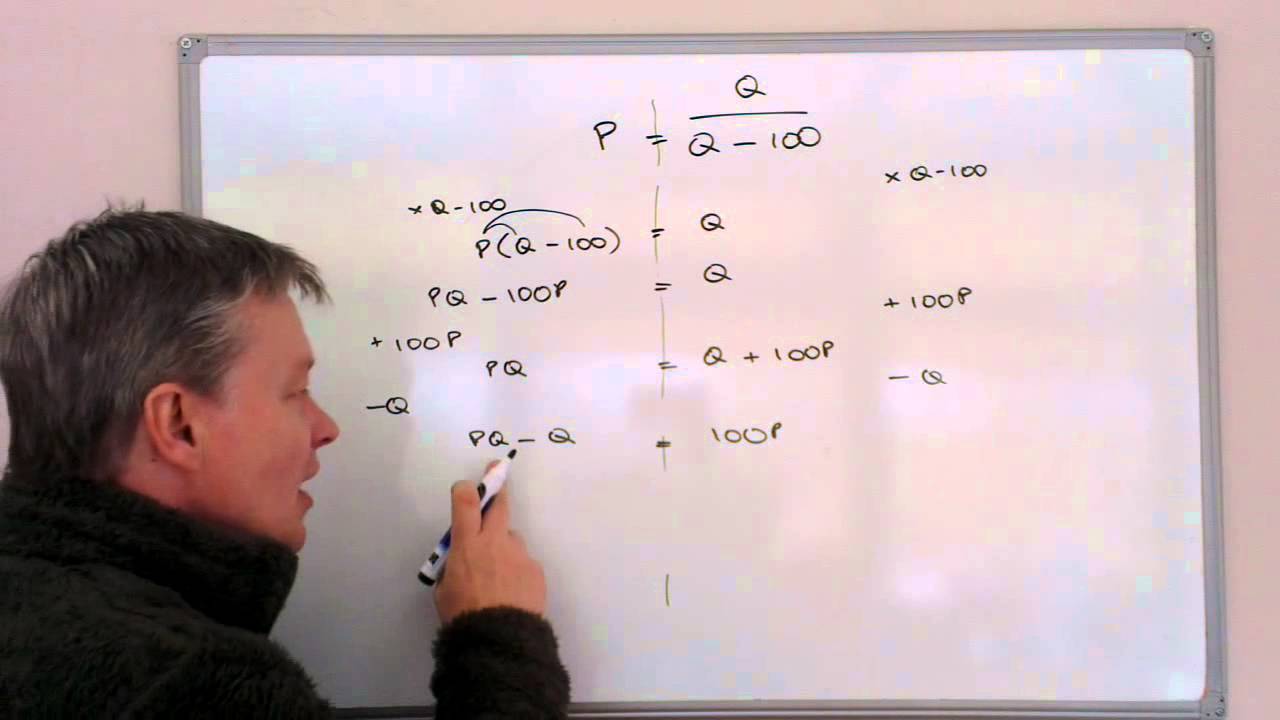 Q
P = Q - 100
× Q - 100
× Q - 100
P(Q - 100) = Q
PQ - 100P = Q
+ 100P
+ 100P
PQ = Q + 100P
- Q
- Q
PQ - Q = 100P